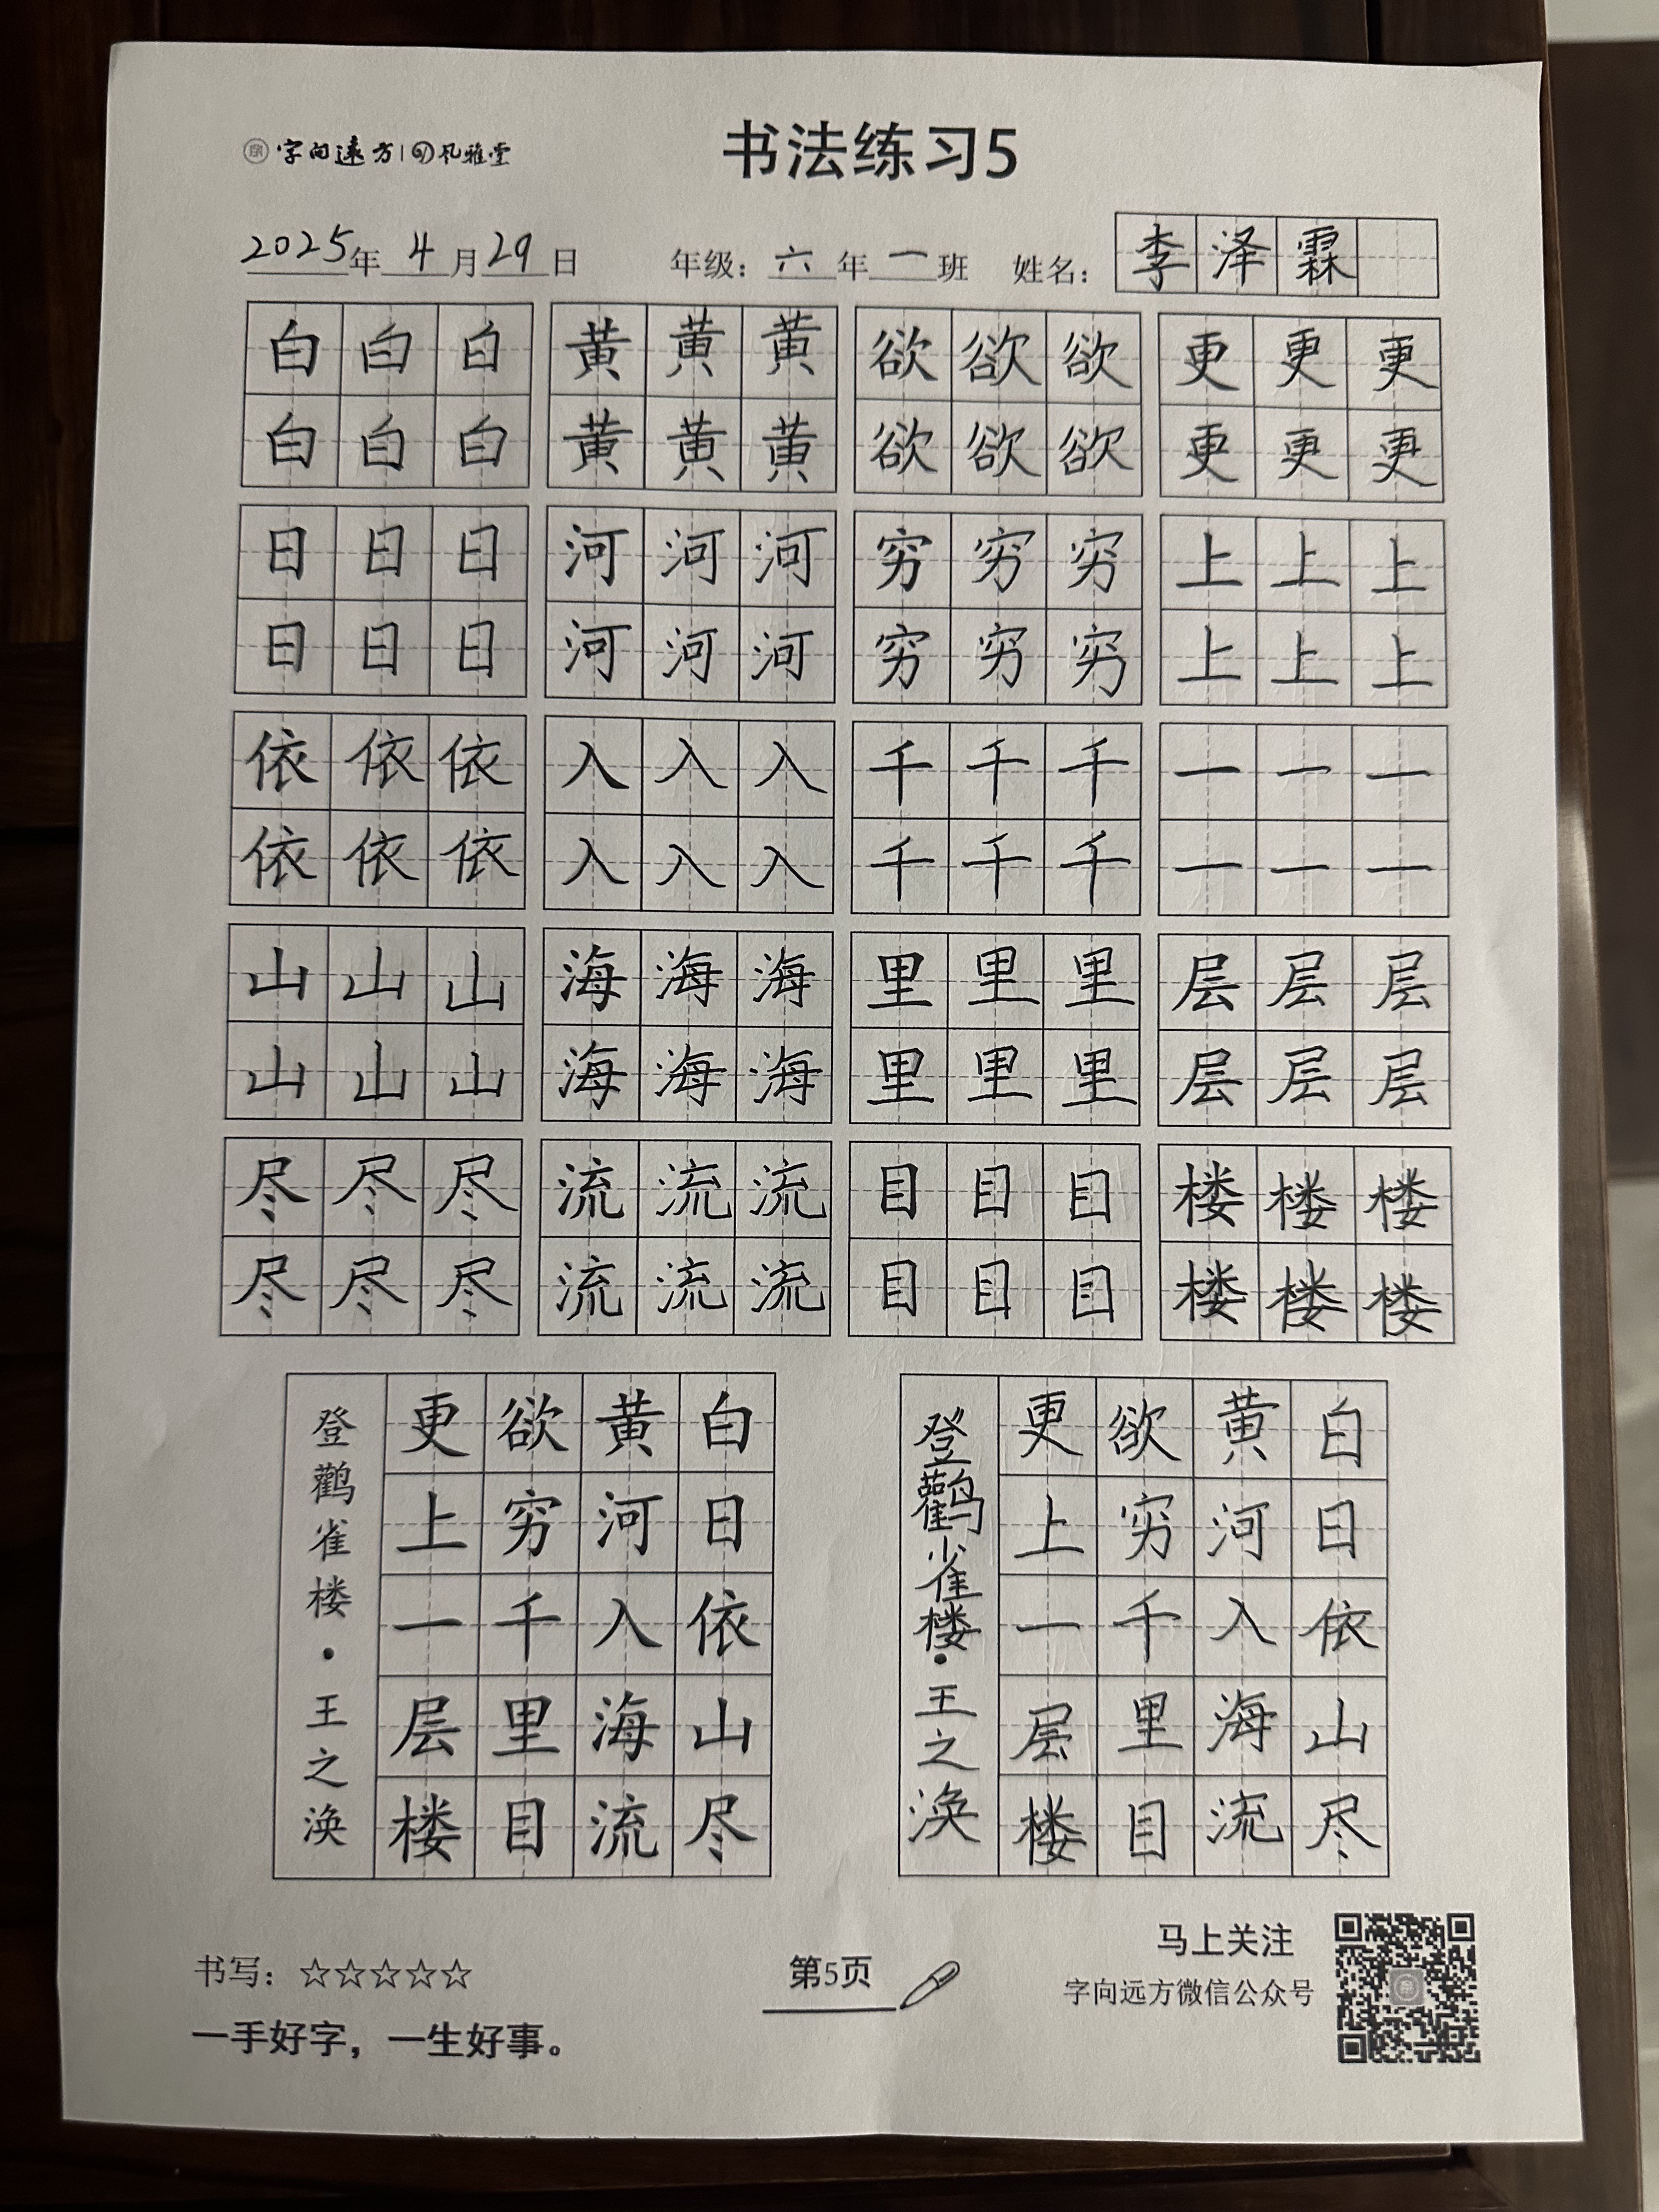 字向远方 | 风雅堂
书法练习5
2025年 4 月 29 日 年级：六年一班 姓名：李泽霖
白白白 黄黄黄 欲欲欲 更更更
白白白 黄黄黄 欲欲欲 更更更
日日日 河河河 穷穷穷 上上上
日日日 河河河 穷穷穷 上上上
依依依 入入入 千千千 一一一
依依依 入入入 千千千 一一一
山山山 海海海 里里里 层层层
山山山 海海海 里里里 层层层
尽尽尽 流流流 目目目 楼楼楼
尽尽尽 流流流 目目目 楼楼楼
白日依山尽
黄河入海流
欲穷千里目
更上一层楼
登鹳雀楼·王之涣
白日依山尽
黄河入海流
欲穷千里目
更上一层楼
登鹳雀楼·王之涣
书写：☆☆☆☆☆
一手好字，一生好事。
第5页
马上关注
字向远方微信公众号